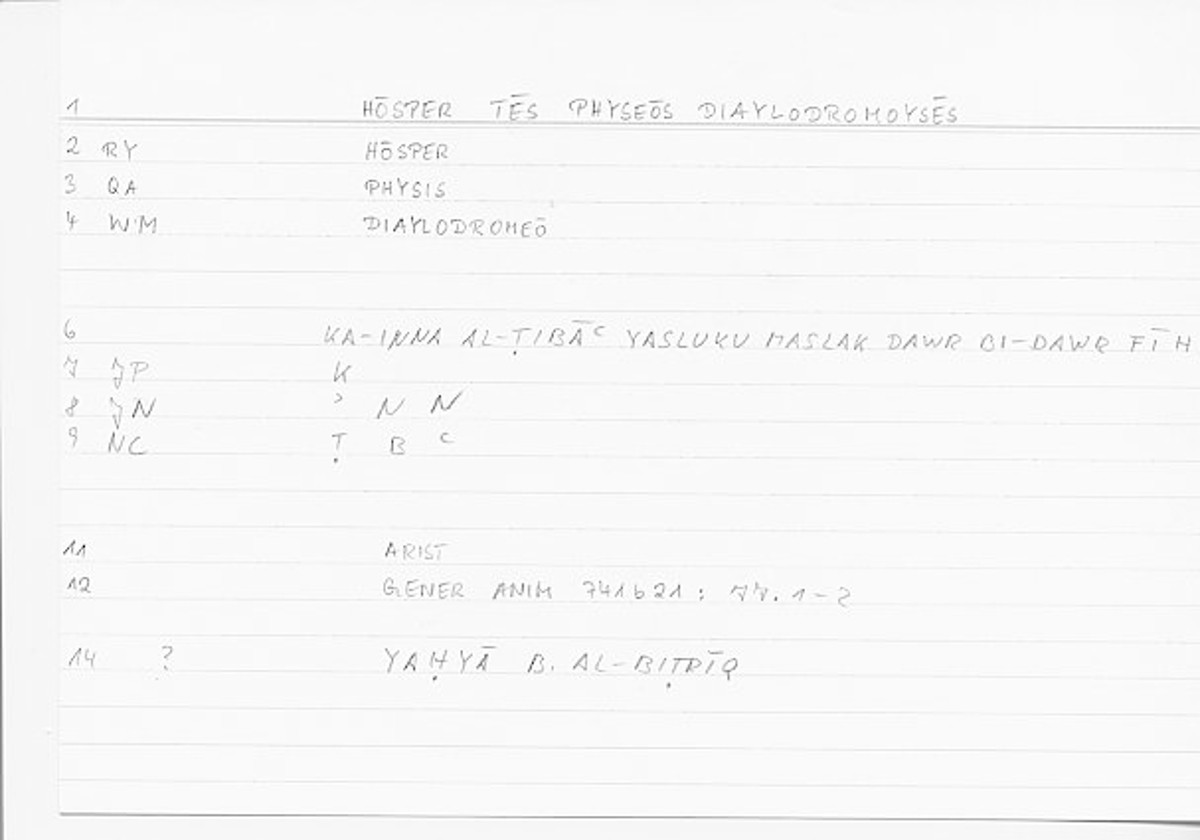 1 HŌSPER TĒS PHYSEŌS DIAYLODROMOYSĒS
2 RY HŌSPER
3 QA PHYSIS
4 W.M DIAYLODROMEŌ
6 KA-INNA AL-ṬIBĀC YASLUKU MASLAK DAWR BI-DAWR FĪH
7 JP K
8 JN ʾ N N
9 NC Ṭ B C
11 ARIST
12 GENER ANIM 741b21: 77.1-2
14 ? YAḤYĀ B. AL-BIṬRĪQ